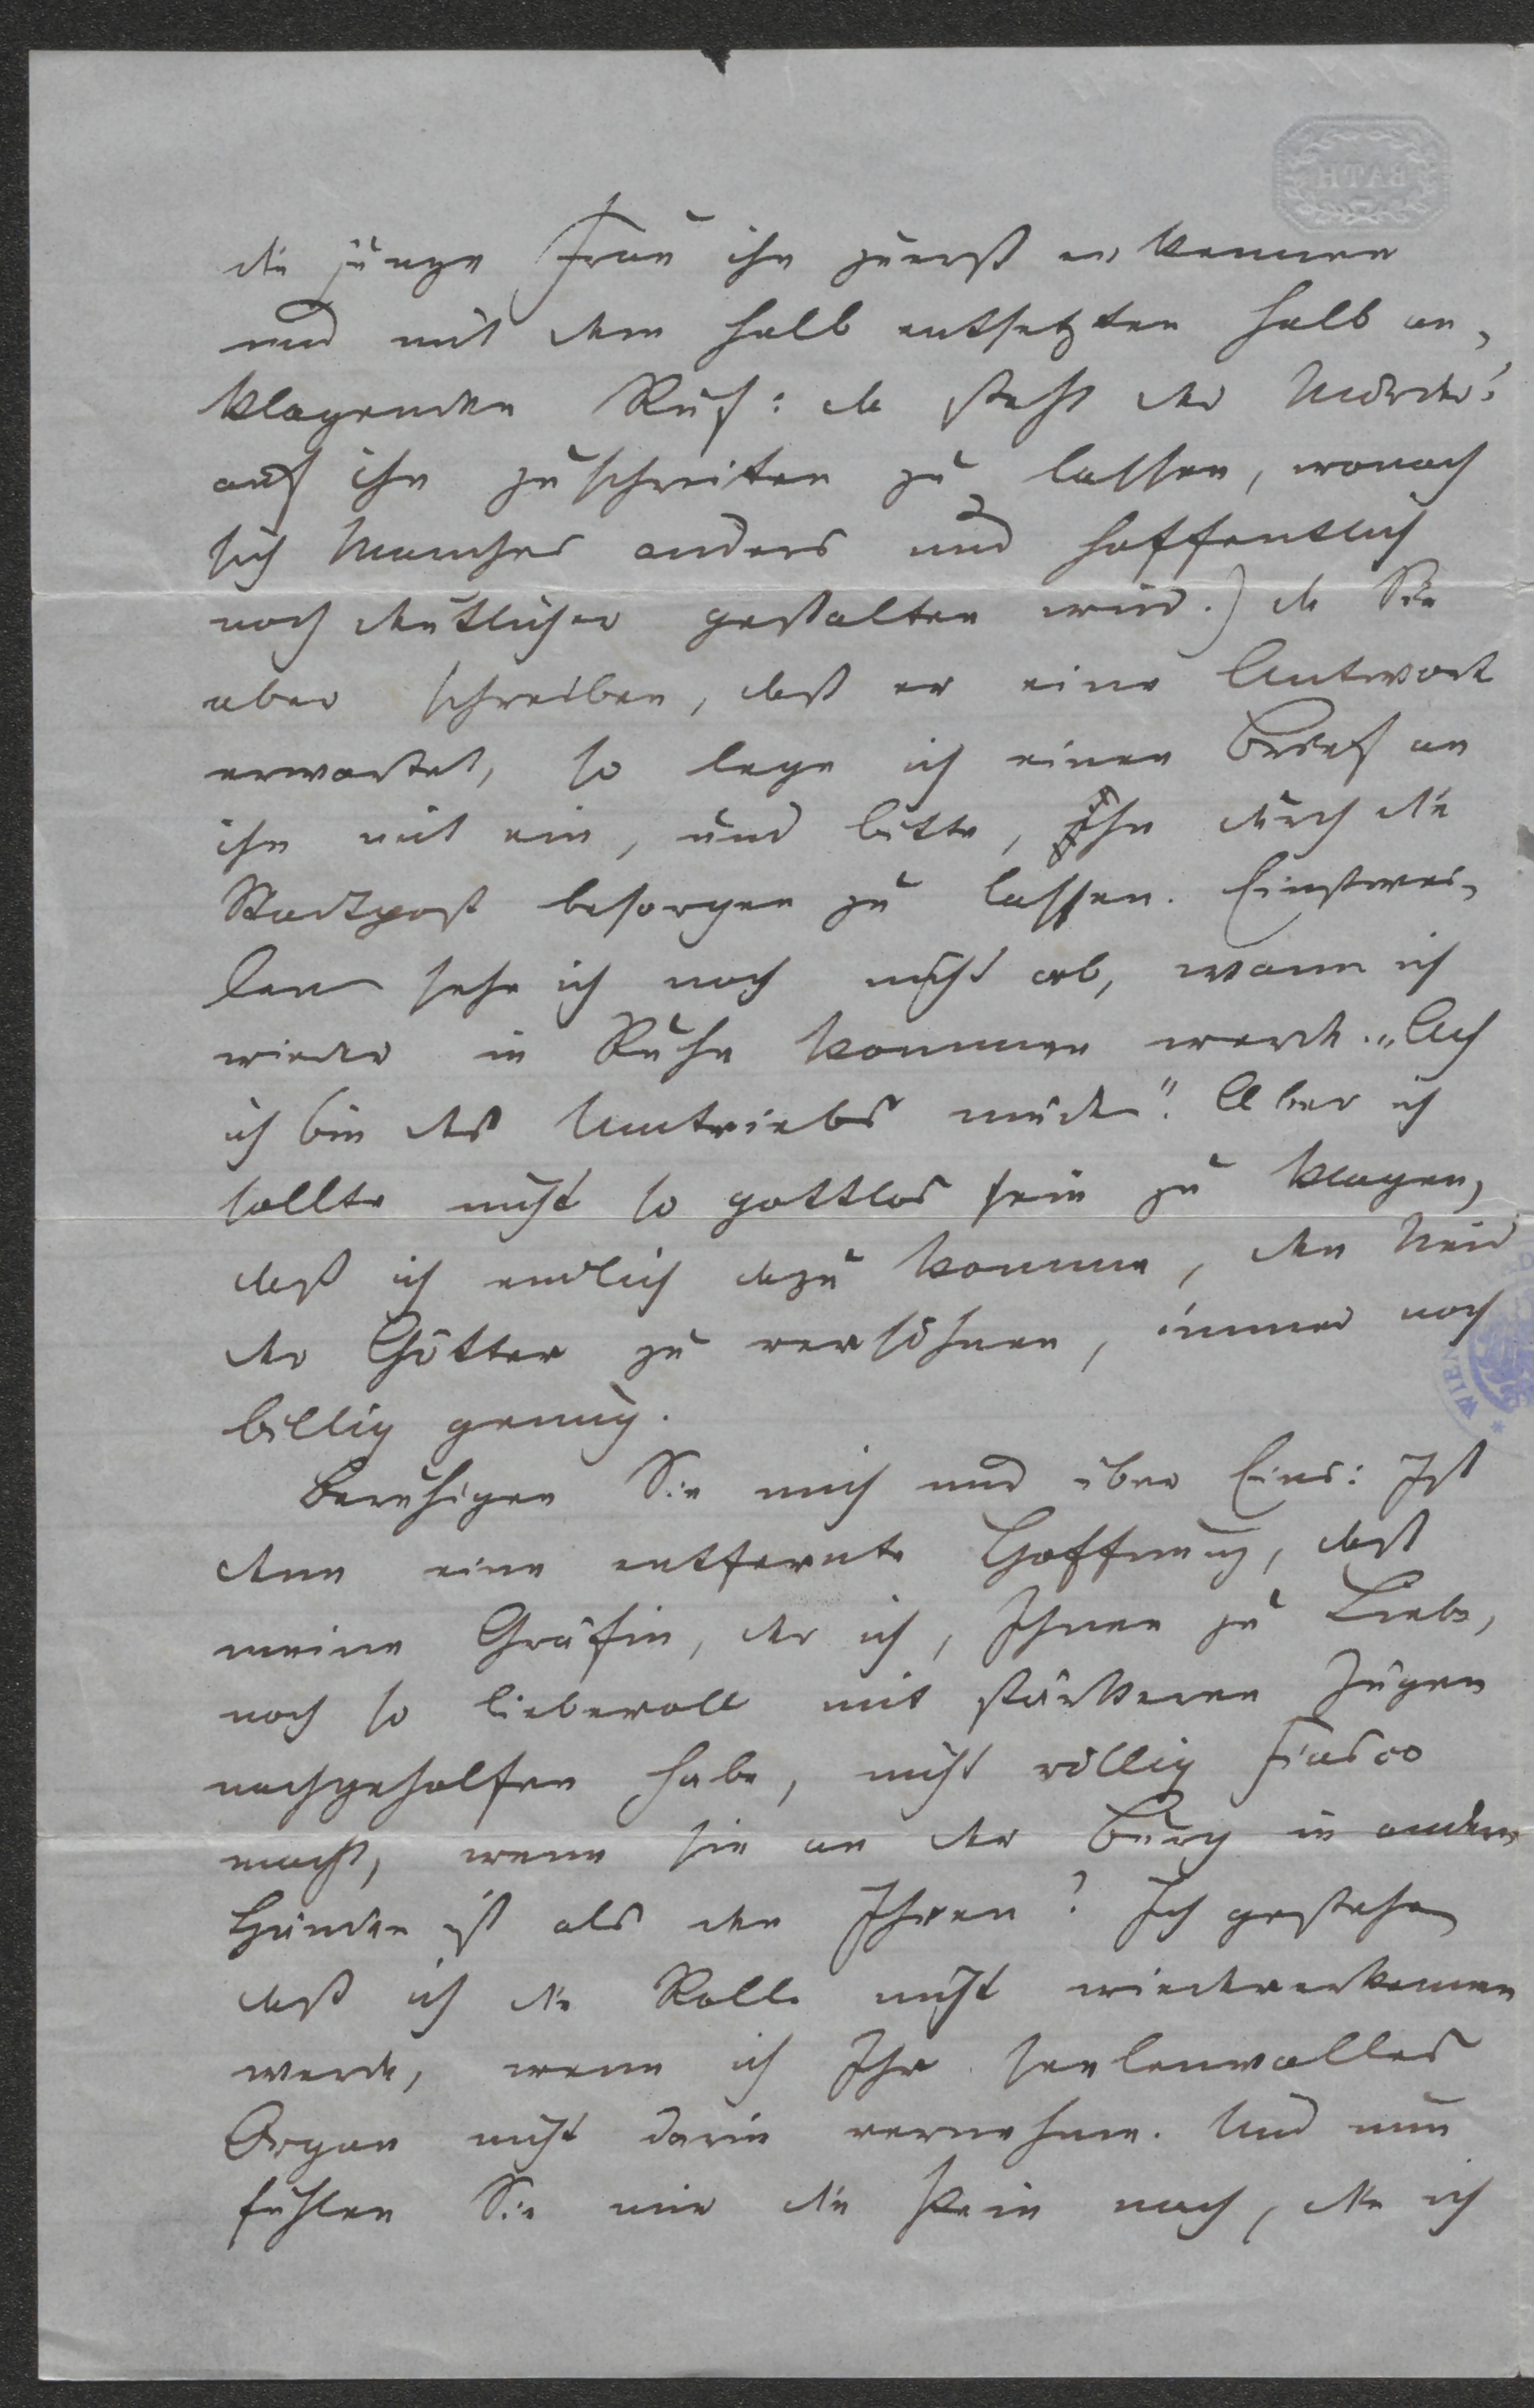 BATH
die junge Frau ihn zuerst erkennen
und mit dem halb entsetzten halb an-
klagenden Ruf: da steht der Mörder!
auf ihn zuschreiten zu lassen, wonach
sich Manches anders und hoffentlich
noch deutlicher gestalten wird.) da Sie
aber schreiben, daß er eine Antwort
erwartet, so lege ich einen Brief an
ihn mit ein, und bitte, Ihn durch die
Stadtpost besorgen zu lassen. Einstwei-
len sehe ich noch nicht ab, wann ich
wieder in Ruhe kommen werde. „Ach
ich bin des Umtriebs müde“. Aber ich
sollte nicht so gottlos sein zu klagen,
daß ich endlich dazu komme, den Neid
der Götter zu versöhnen, immer noch
billig genug.
Beruhigen Sie mich nur über Eins: Ist
denn eine entfernte Hoffnung, daß
meine Gräfin, der ich, Ihnen zu Liebe,
noch so liebevoll mit stärkeren Zügen
nachgeholfen habe, nicht völlig Fiasco
macht, wenn sie an der Burg in andern
Händen ist als den Ihren? Ich gestehe
daß ich die Rolle nicht wiedererkennen
werde, wenn ich Ihr seelenvolles
Organ nicht darin vernehme. Und nun
fühlen Sie mir die Pein nach, die ich
WIEN